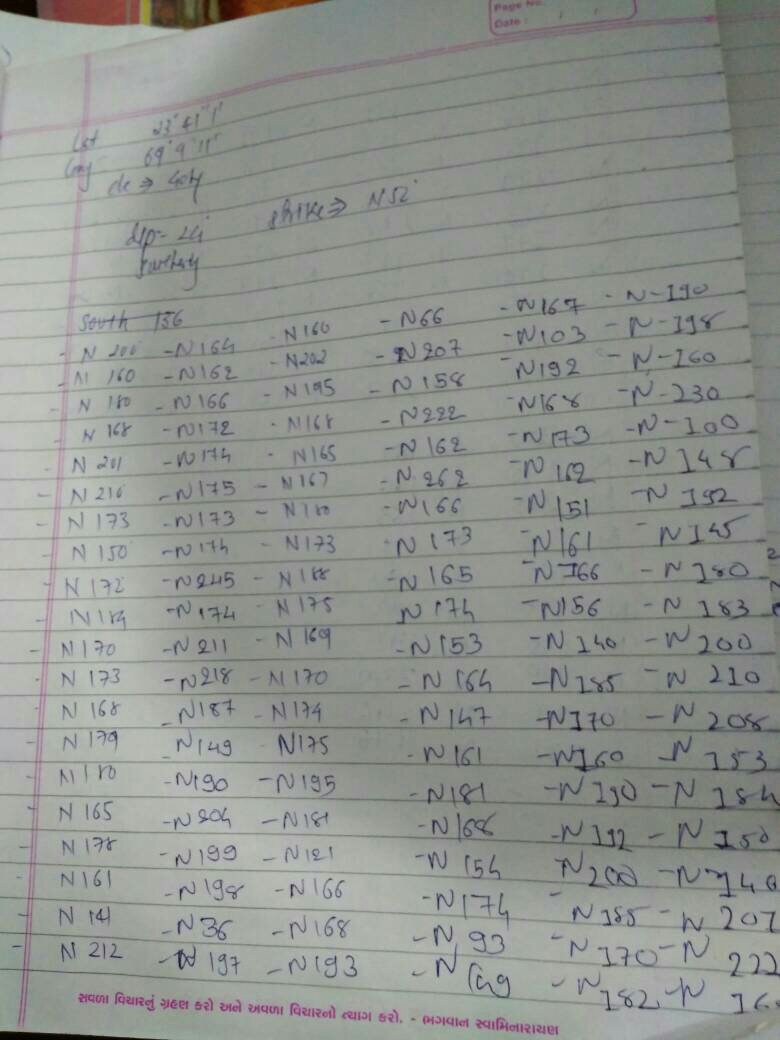 Page No.
Date : / /
Lat 23° 41' 1"
Long 69° 9' 11"
dip - 24°
strike ⇒ N52°
South 156
- N 200 - N164 - N160 - N66 - N167 - N-190
- N 160 - N162 - N202 - N207 - N103 - N-198
- N 180 - N166 - N195 - N158 - N192 - N-160
- N 168 - N172 - N168 - N222 - N168 - N-230
- N 201 - N174 - N165 - N162 - N173 - N-100
- N 210 - N175 - N167 - N262 - N162 - N148
- N 173 - N173 - N180 - N166 - N151 - N192
- N 150 - N174 - N173 - N173 - N161 - N145
- N 172 - N245 - N168 - N165 - N166 - N180
- N184 - N174 - N175 N174 - N156 - N183
- N170 - N211 - N169 - N153 - N140 - N200
- N 173 - N218 - N170 - N164 - N185 - N 210
- N 168 - N187 - N174 - N147 - N170 - N 208
- N 179 - N149 N175 - N161 - N160 - N 153
- N180 - N190 - N195 - N181 - N190 - N 184
- N 165 - N204 - N181 - N168 - N192 - N 150
- N 178 - N199 - N121 - N 154 N200 - N 140
- N161 - N198 - N166 - N174 - N185 - N 207
- N 141 - N36 - N168 - N 93 - N170 - N 222
- N 212 - N 197 - N193 - N - N182 - N
સવળા વિચારનું ગ્રહણ કરો અને અવળા વિચારનો ત્યાગ કરો. - ભગવાન સ્વામિનારાયણ